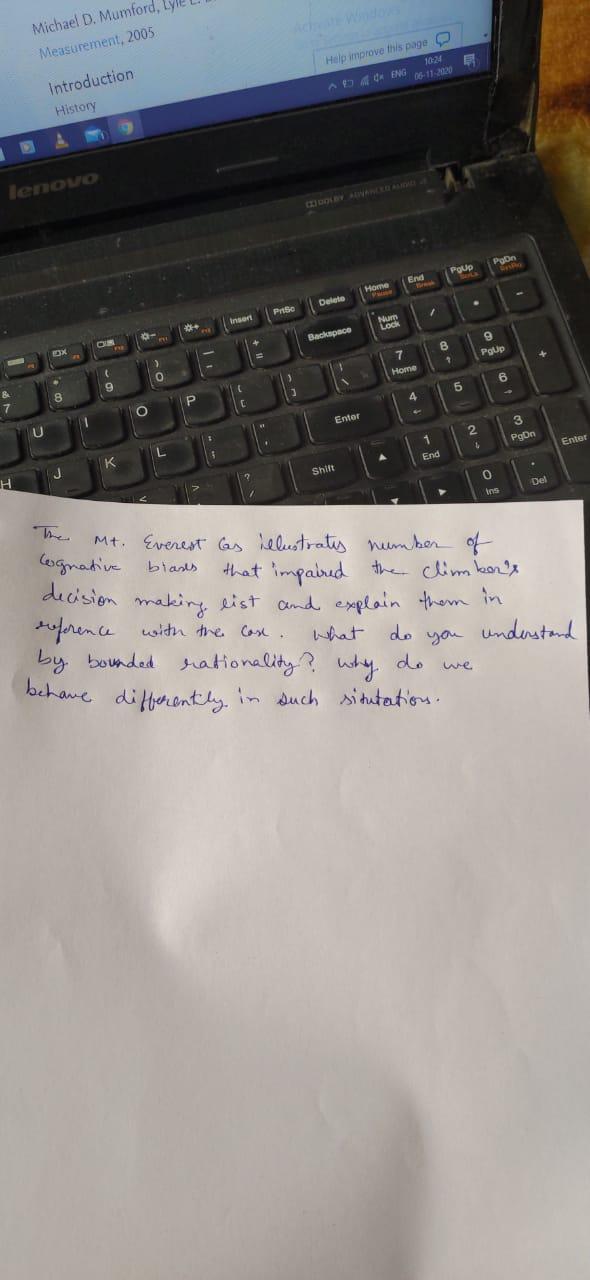 Michael D. Mumford, Lyle L.
Measurement, 2005
Introduction
History
Activate Windows
Help improve this page
ENG
10:24
06-11-2020
lenovo
DOLBY ADVANCED AUDIO
Insert PrtSc Delete Home Pause End Break PgUp ScrLk PgDn
Backspace Num Lock / * -
& 7 * 8 ( 9 ) 0 _ - + =
7 Home 8 9 PgUp +
U I O P { [ } ] | \
4 5 6
H J K L : ; " ' Enter
1 End 2 3 PgDn Enter
< > ? / Shift
0 Ins . Del
The Mt. Everest Cas illustrates number of
Cognative biases that impaired the climber's
decision making, list and explain them in
reference with the Case. What do you understand
by bounded rationality? why do we
behave differently in such situtation.